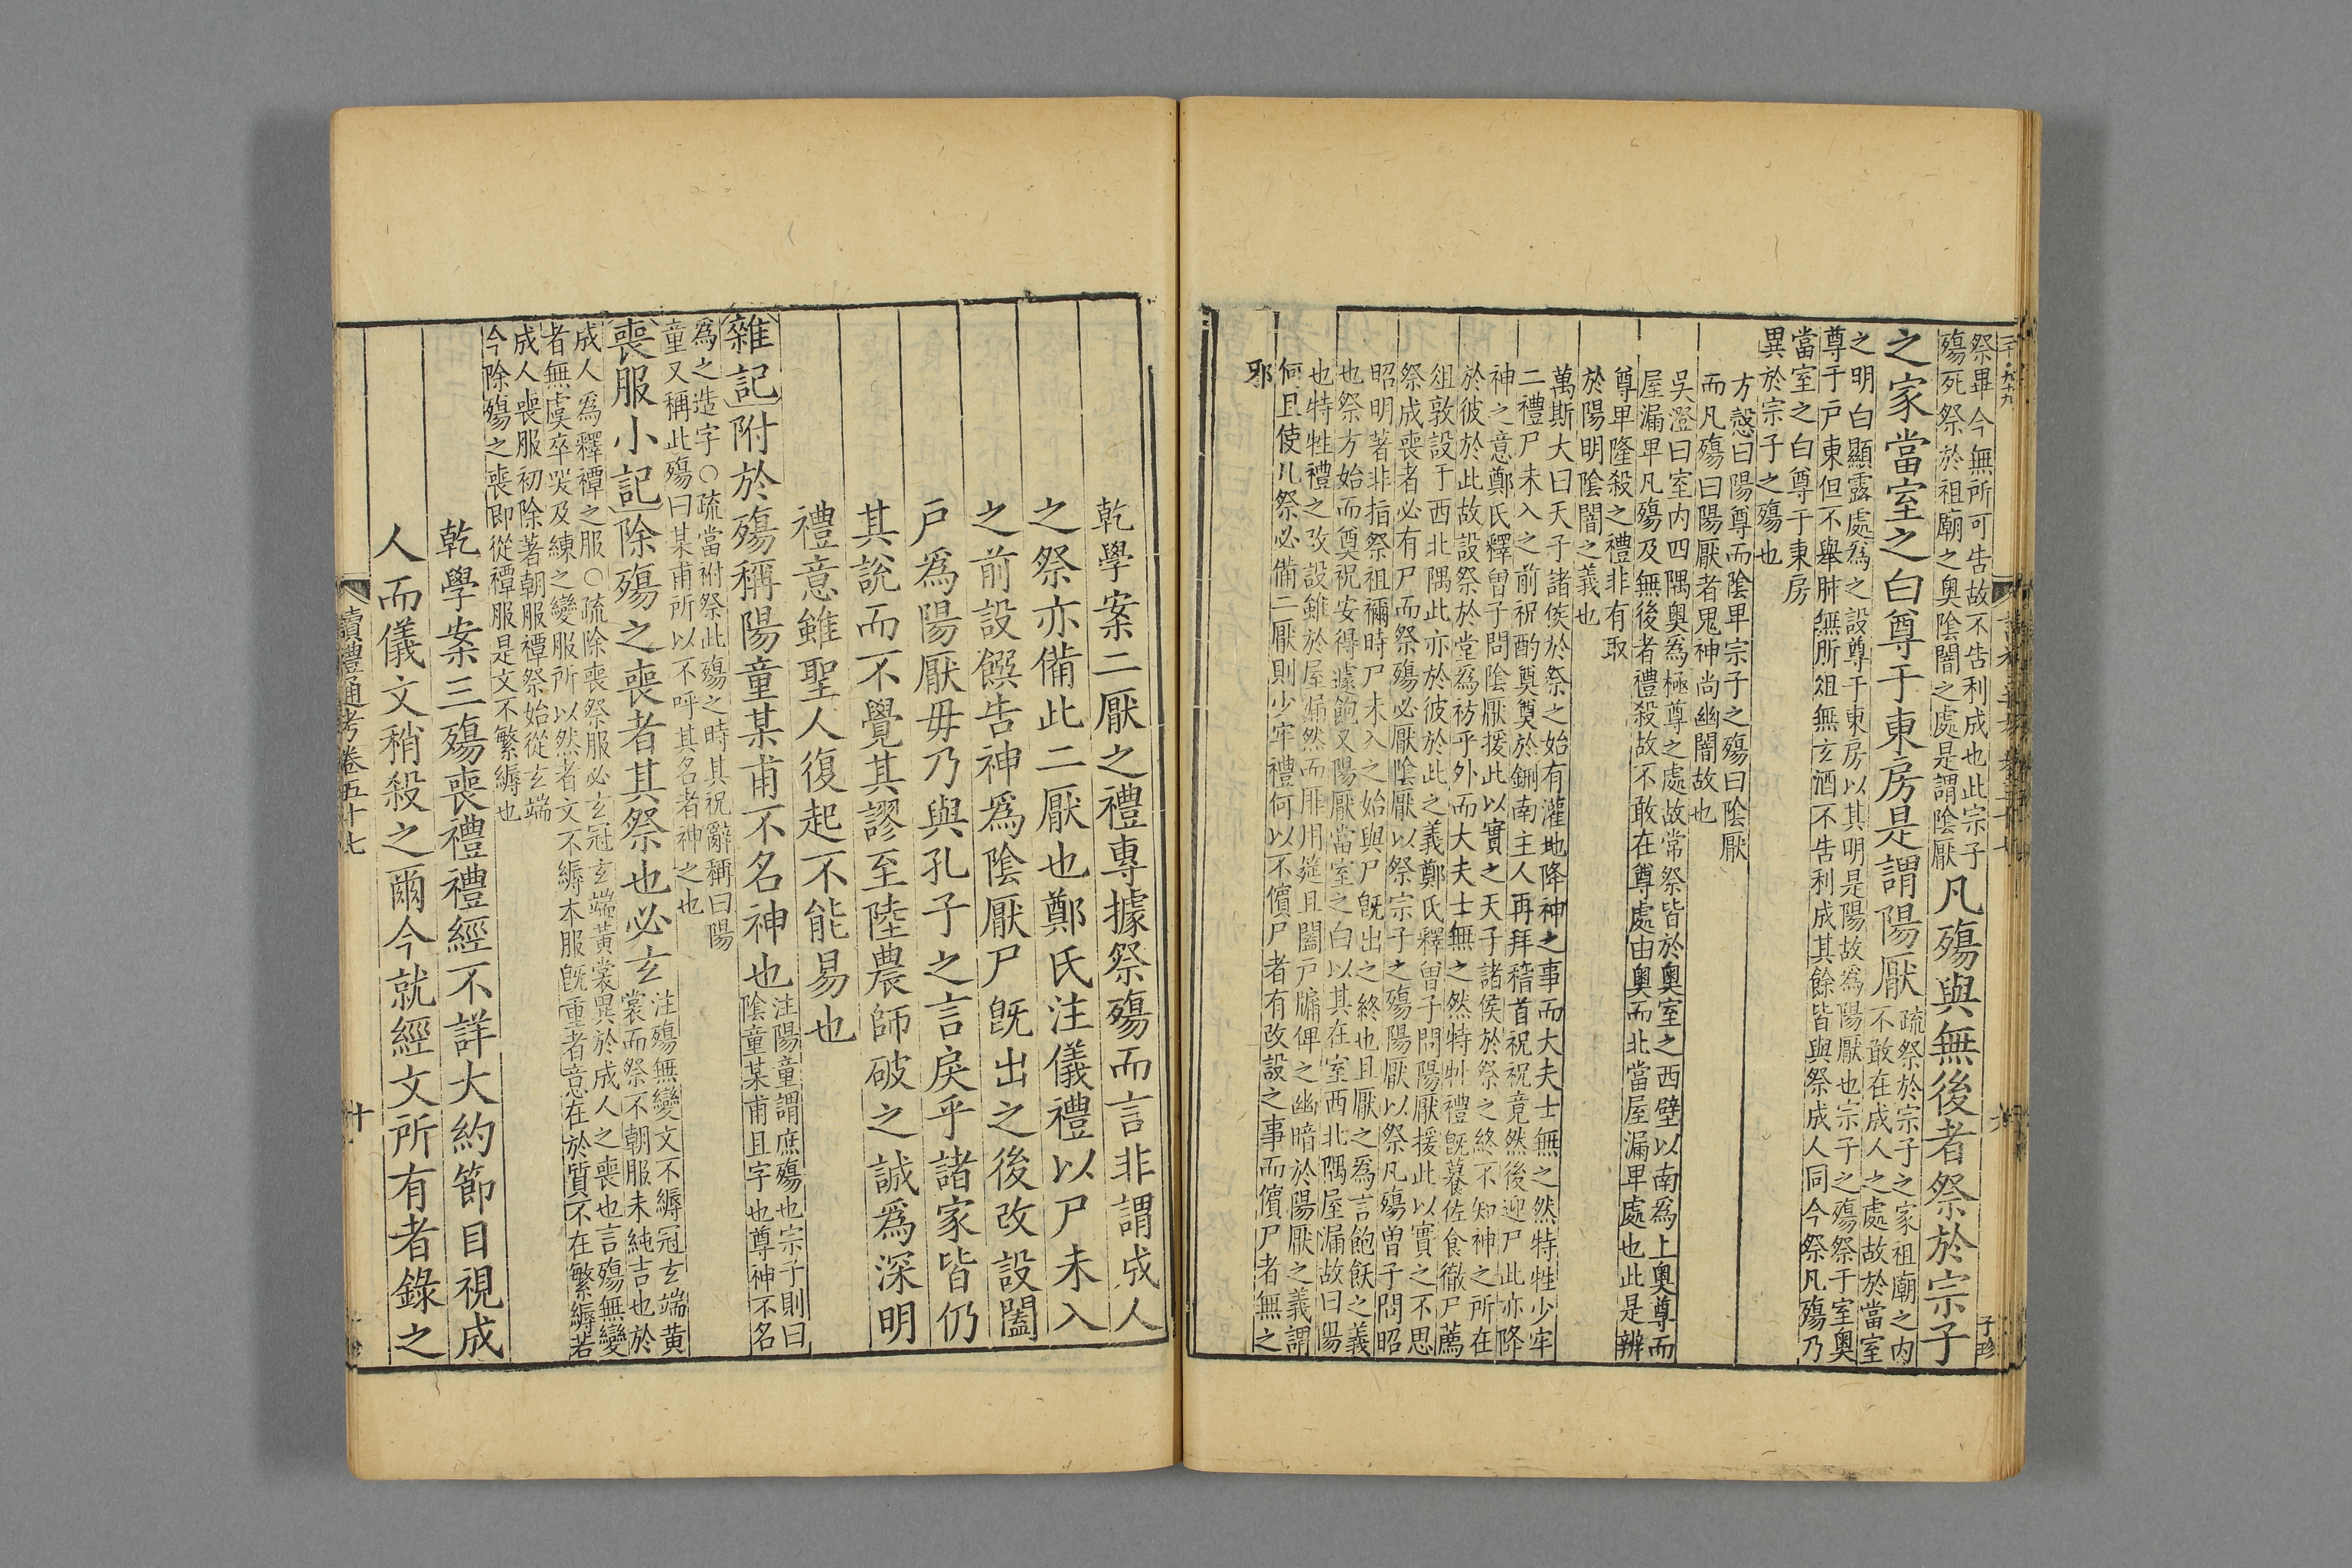 祭畢今無所可告故不告利成也此宗子
殤死祭於祖廟之奧陰闇之處是謂陰厭
凡殤與無後者祭於宗子
之家當室之白尊于東房是謂陽厭
疏祭於宗子之家祖廟之內
不敢在成人之處故於當室
之明白顯露處為之設尊于東房以其明是陽故為陽厭也宗子之殤祭于室奧
尊于戶東但不舉肺無肵俎無玄酒不告利成其餘皆與祭成人同今祭凡殤乃
當室之白尊于東房
異於宗子之殤也
方愨曰陽尊而陰卑宗子之殤曰陰厭
而凡殤曰陽厭者鬼神尚幽闇故也
吳澄曰室內四隅奧為極尊之處故常祭皆於奧室之西壁以南為上奧尊而
屋漏卑凡殤及無後者禮殺故不敢在尊處由奧而北當屋漏卑處也此是辨
尊卑隆殺之禮非有取
於陽明陰闇之義也
萬斯大曰天子諸侯於祭之始有灌地降神之事而大夫士無之然特牲少牢
二禮尸未入之前祝酌奠奠於鉶南主人再拜稽首祝祝竟然後迎尸此亦降
神之意鄭氏釋曾子問陰厭援此以實之天子諸侯於祭之終不知神之所在
於彼於此故設祭於堂為祊乎外而大夫士無之然特牲禮旣暮佐食徹尸薦
俎敦設于西北隅此亦於彼於此之義鄭氏釋曾子問陽厭援此以實之不思
祭成喪者必有尸而祭殤必厭陰厭以祭宗子之殤陽厭以祭凡殤曾子問昭
昭明著非指祭祖禰時尸未入之始與尸旣出之終也且厭之為言飽飫之義
也祭方始而奠祝安得遽飽又陽厭當室之白以其在室西北隅屋漏故曰陽
也特牲禮之改設雖於屋漏然而厞用筵且闔戶牖俾之幽暗於陽厭之義謂
何且使凡祭必備二厭則少牢禮何以不儐尸者有改設之事而儐尸者無之
邪
子珍
乾學案二厭之禮專據祭殤而言非謂成人
之祭亦備此二厭也鄭氏注儀禮以尸未入
之前設饌告神為陰厭尸旣出之後改設闔
戶為陽厭毋乃與孔子之言戾乎諸家皆仍
其說而不覺其謬至陸農師破之誠為深明
禮意雖聖人復起不能易也
雜記附於殤稱陽童某甫不名神也
注陽童謂庶殤也宗子則曰
陰童某甫且字也尊神不名
為之造字○疏當祔祭此殤之時其祝辭稱曰陽
童又稱此殤曰某甫所以不呼其名者神之也
喪服小記除殤之喪者其祭也必玄
注殤無變文不縟冠玄端黃
裳而祭不朝服未純吉也於
成人為釋禫之服○疏除喪祭服必玄冠玄端黃裳異於成人之喪也言殤無變
者無虞卒哭及練之變服所以然者文不縟本服旣重者意在於質不在繁縟若
成人喪服初除著朝服禫祭始從玄端
今除殤之喪即從禫服是文不繁縟也
乾學案三殤喪禮禮經不詳大約節目視成
人而儀文稍殺之爾今就經文所有者錄之
讀禮通考卷五十七
十